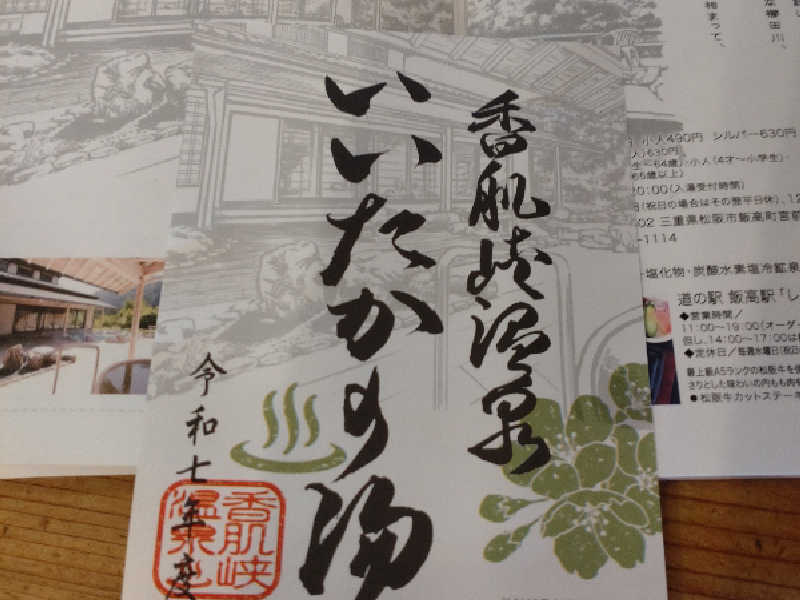 香肌峡温泉
いいたかの湯
令和七年度
香肌峡
温泉
小人490円 シルバー630円
630円
小人(4才〜小学生)
20:00(入湯受付時間)
(祝日の場合はその翌平日休)、12
02 三重県松阪市飯高町宮前
-1114
塩化物・炭酸水素塩冷鉱泉
道の駅 飯高駅「レ
◆営業時間／
11:00〜19:00(オーダ
但し、14:00〜17:00は
◆定休日／毎週水曜日(祝日
最上級A5ランクの松阪牛を使
さりとした味わいの内もも肉
●松阪牛カットステーキ